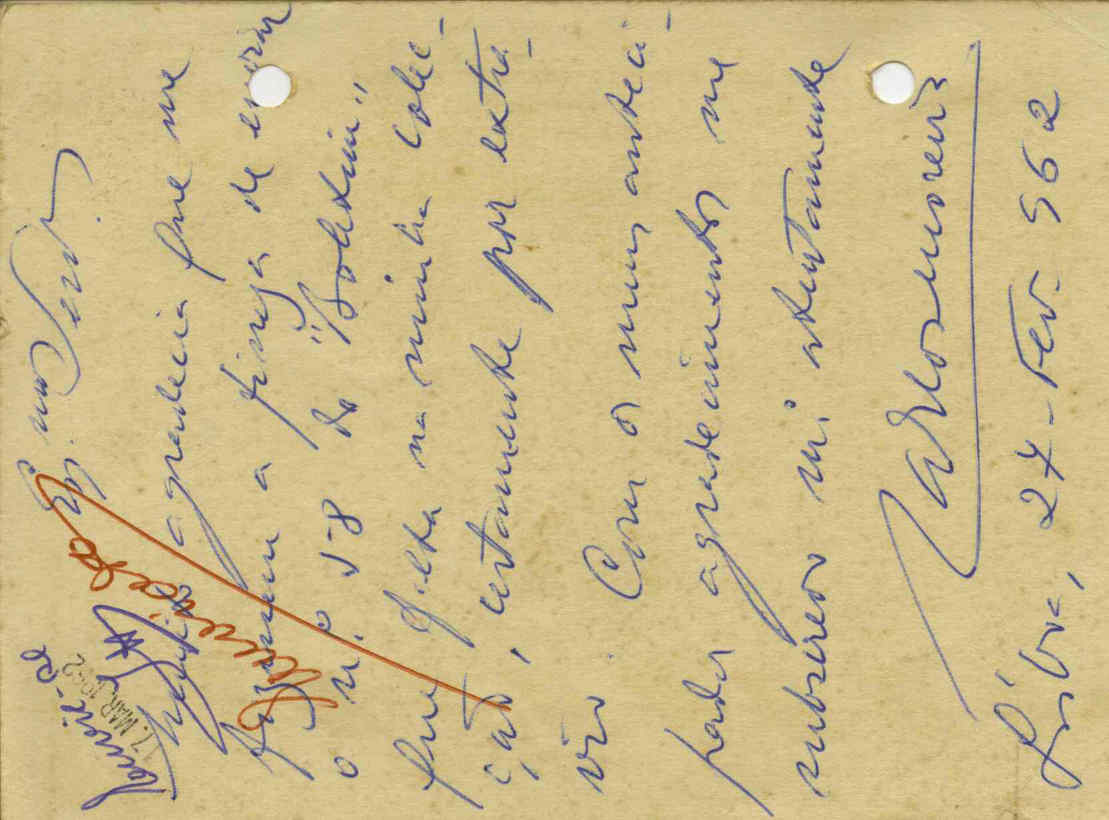 Ex. mos Senr.
Muito agradecia que me
fizessem a fineza de enviar
o n.º 58 do "Boletim"
que falta na minha colec-
ção, certamente por extra-
vio.
Com os meus anteci-
pados agradecimentos me
subscrevo mi atentamente
Carlos Moreira
Lisboa, 27-Fev-962
Remeta-se
17. MAR. 1962